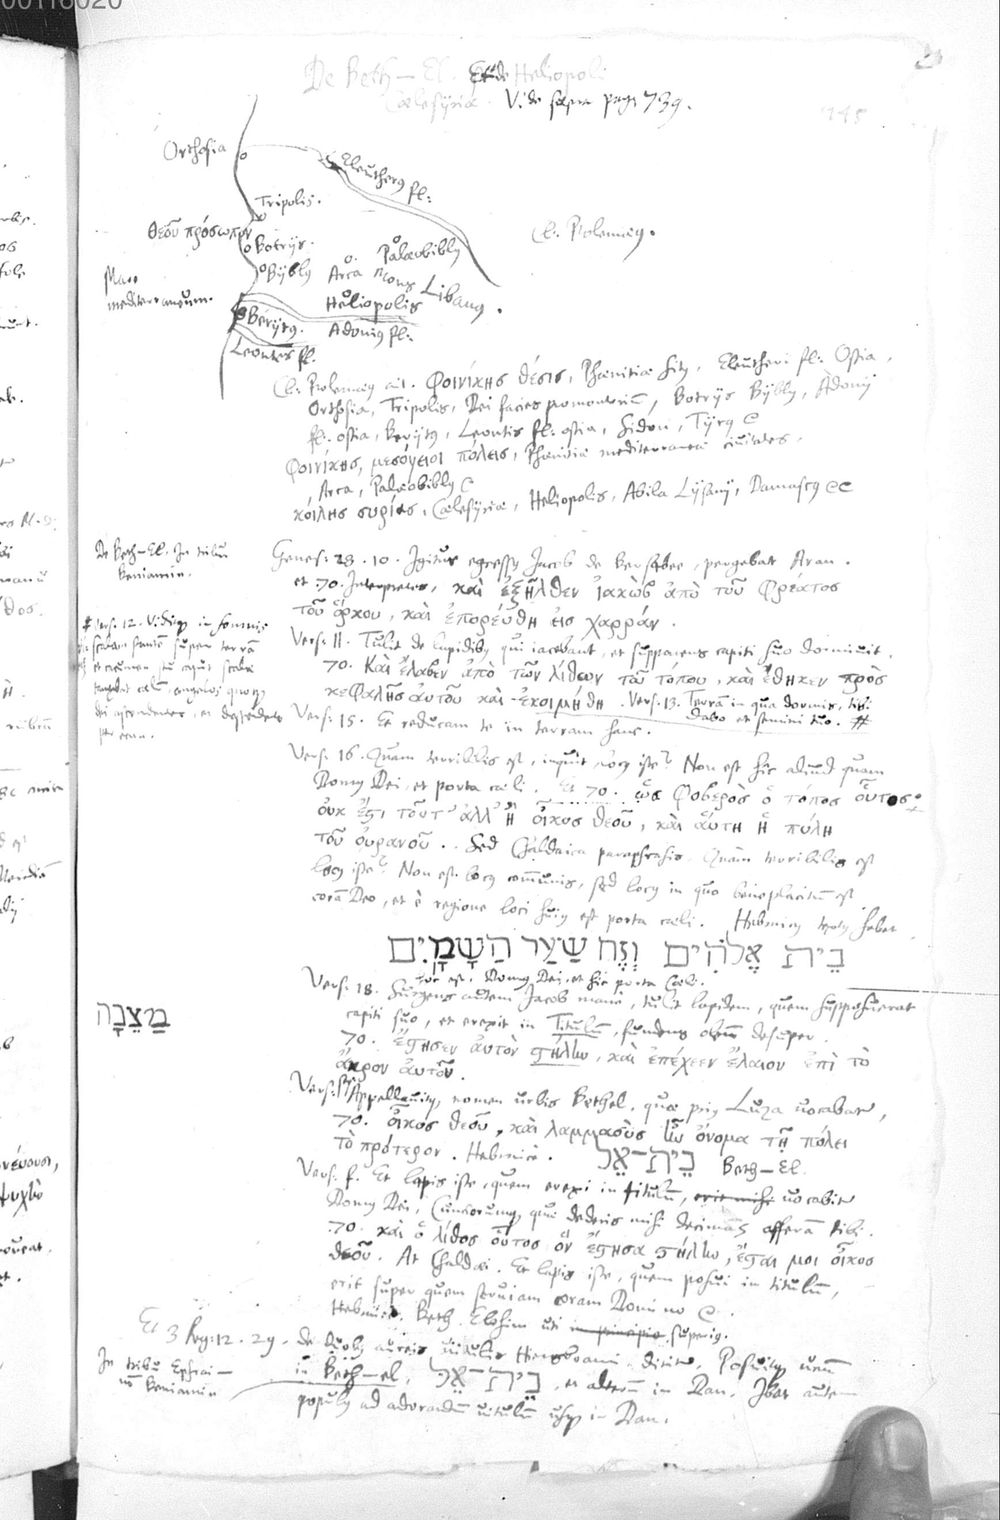 00116020
De Beth-El. Et de Heliopoli
Cælesyriæ. Vide supra pag. 739.
745
Orthosia
Eleutherus fl:
Tripolis.
θεοῦ πρόσωπον
Botrys.
Palæobiblus
Cl. Ptolemæus.
Byblus
Arca
Mons Libanus.
Mare
mediterraneum.
Heliopolis
Berytus.
Adonius fl:
Leontes fl.
Cl. Ptolemæus ait. Φοινίκης θέσις, Phænitiæ situs, Eleutheri fl: Ostia,
Orthosia, Tripolis, Dei facies promontorium, Botrys Byblus, Adonij
fl: ostia, Berytus, Leontis fl: ostia, Sidon, Tyrus &
Φοινίκης, μεσόγειοι πόλεις, Phænitiæ mediterraneæ ciuitates,
Arca, Palæobiblus &
κοίλης συρίας, Cælesyriæ, Heliopolis, Abila Lysanij, Damascus &c
De Beth-El. In tribu
Beniamin.
Genes: 28. 10. Igitur egressus Jacob de Bersabee, pergebat Aran.
et 70. Interpretes, καὶ ἐξῆλθεν ἰακὼβ ἀπὸ τοῦ φρέατος
τοῦ ὅρκου, καὶ ἐπορεύθη εἰς χαρράν.
Vers: 11. Tulit de lapidibus qui iacebant, et supponens capiti suo dormiuit.
70. Καὶ ἔλαβεν ἀπὸ τῶν λίθων τοῦ τόπου, καὶ ἔθηκεν πρὸς
κεφαλῆς αὐτοῦ καὶ ἐκοιμήθη. Vers. 13. Terrā in qua dormis, tibi
dabo et semini tuo. #
# Vers. 12. Viditque in somnis
scalam stantē super terrā
et cacumen
tangebat cœlū, angelos quoque
dei ascendentes, et descendentes
per eam.
Vers: 15. Et reducam te in terram hanc.
Vers: 16. Quam terribilis est, inquit, locus iste? Non est hic aliud quam
Domus Dei, et porta cœli. Et 70. ὡς φοβερὸς ὁ τόπος οὗτος
οὐκ ἔστι τοῦτ' ἀλλ' ἢ οἶκος θεοῦ, καὶ αὕτη ἡ πύλη
τοῦ οὐρανοῦ. Sed Chaldaica paraphrasis. Quàm terribilis est
locus iste? Non est locus communis, sed locus in quo beneplacitum est
corā Deo, et è regione loci huius est porta cœli. Hebraicus textus habet
בֵּית אֱלֹהִים וְזֶה שַׁעַר הַשָּׁמָיִם
hoc est, Domus Dei, et hic porta Cœli.
מַצֵּבָה
Vers: 18. Surgens autem Jacob manè, tulit lapidem, quem supposuerat
capiti suo, et erexit in Titulū, fundens oleum desuper.
70. ἔστησεν αὐτὸν στήλην, καὶ ἐπέχεεν ἔλαιον ἐπὶ τὸ
ἄκρον αὐτοῦ.
Vers: Appellauitque nomen urbis Bethel, quæ prius Luza uocabatur,
70. οἶκος θεοῦ, καὶ λαμμαοὺς ἦν ὄνομα τῇ πόλει
τὸ πρότερον. Hebraicè. בֵּית־אֵל Beth-El.
Vers: f. Et lapis iste, quem erexi in titulū, erit mihi uocabitur
Domus Dei, Cunctorumque quæ dederis mihi decimas offerā tibi.
70. καὶ ὁ λίθος οὗτος ὃν ἔστησα στήλην, ἔσται μοι οἶκος
θεοῦ. At Chaldæi. Et lapis iste, quem posui in titulū,
erit super quem seruiam coram Domino &.
Hebraicè. Beth-Elohim uti in principio superius.
Et 3 Reg: 12. 29. de duobus aureis uitulis Hieroboami dicitur. Posuitque unum
In tribu Ephraim
Beniamin
in Beth-el, בֵּית־אֵל, et alterū in Dan. Ibat autem
populus ad adorandū uitulū usque in Dan.